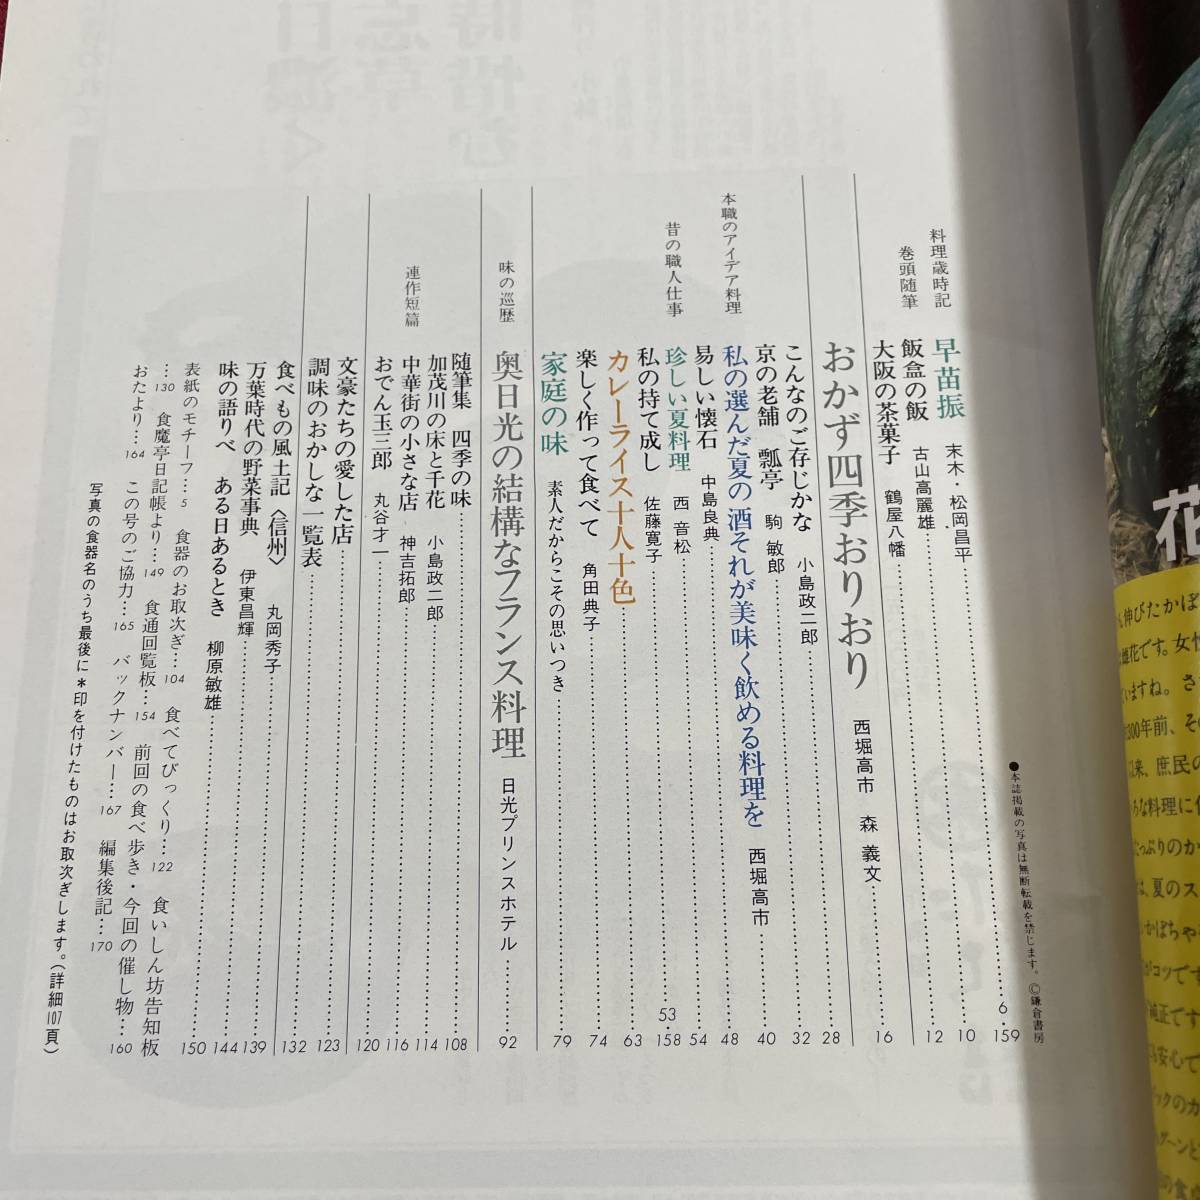 ●本誌掲載の写真は無断転載を禁じます。©鎌倉書房
料理歳時記 早苗振 末木・松岡昌平……6・159
巻頭随筆 飯盒の飯 古山高麗雄……10
大阪の茶菓子 鶴屋八幡……12
おかず四季おりおり 西堀高市 森 義文……16
こんなのご存じかな 小島政二郎……28
京の老舗 瓢亭 駒 敏郎……32
本職のアイデア料理 私の選んだ夏の酒それが美味く飲める料理を 西堀高市……40
易しい懐石 中島良典……48
昔の職人仕事 珍しい夏料理 西 音松……54
私の持て成し 佐藤寛子……53・158
カレーライス十人十色……63
楽しく作って食べて 角田典子……74
家庭の味 素人だからこその思いつき……79
味の巡歴 奥日光の結構なフランス料理 日光プリンスホテル……92
随筆集 四季の味……108
連作短篇 加茂川の床と千花 小島政二郎……114
中華街の小さな店 神吉拓郎……116
おでん玉三郎 丸谷才一……120
文豪たちの愛した店……123
調味のおかしな一覧表……132
食べもの風土記〈信州〉 丸岡秀子……139
万葉時代の野菜事典 伊東昌輝……144
味の語りべ ある日あるとき 柳原敏雄……150
表紙のモチーフ…5 食器のお取次ぎ…104 食べてびっくり…122 食いしん坊告知板
…130 食魔亭日記帳より…149 食通回覧板…154 前回の食べ歩き・今回の催し物…160
おたより…164 この号のご協力…165 バックナンバー…167 編集後記…170
写真の食器名のうち最後に＊印を付けたものはお取次ぎします。(詳細107頁)
花
伸びたかぼ
雌花です。女性
いますね。さ
300年前、その
以来、庶民の
ろな料理に
たっぷりのか
は、夏のス
かぼちゃ
がコツです
純正です
安心で
ックのカ
グーンと